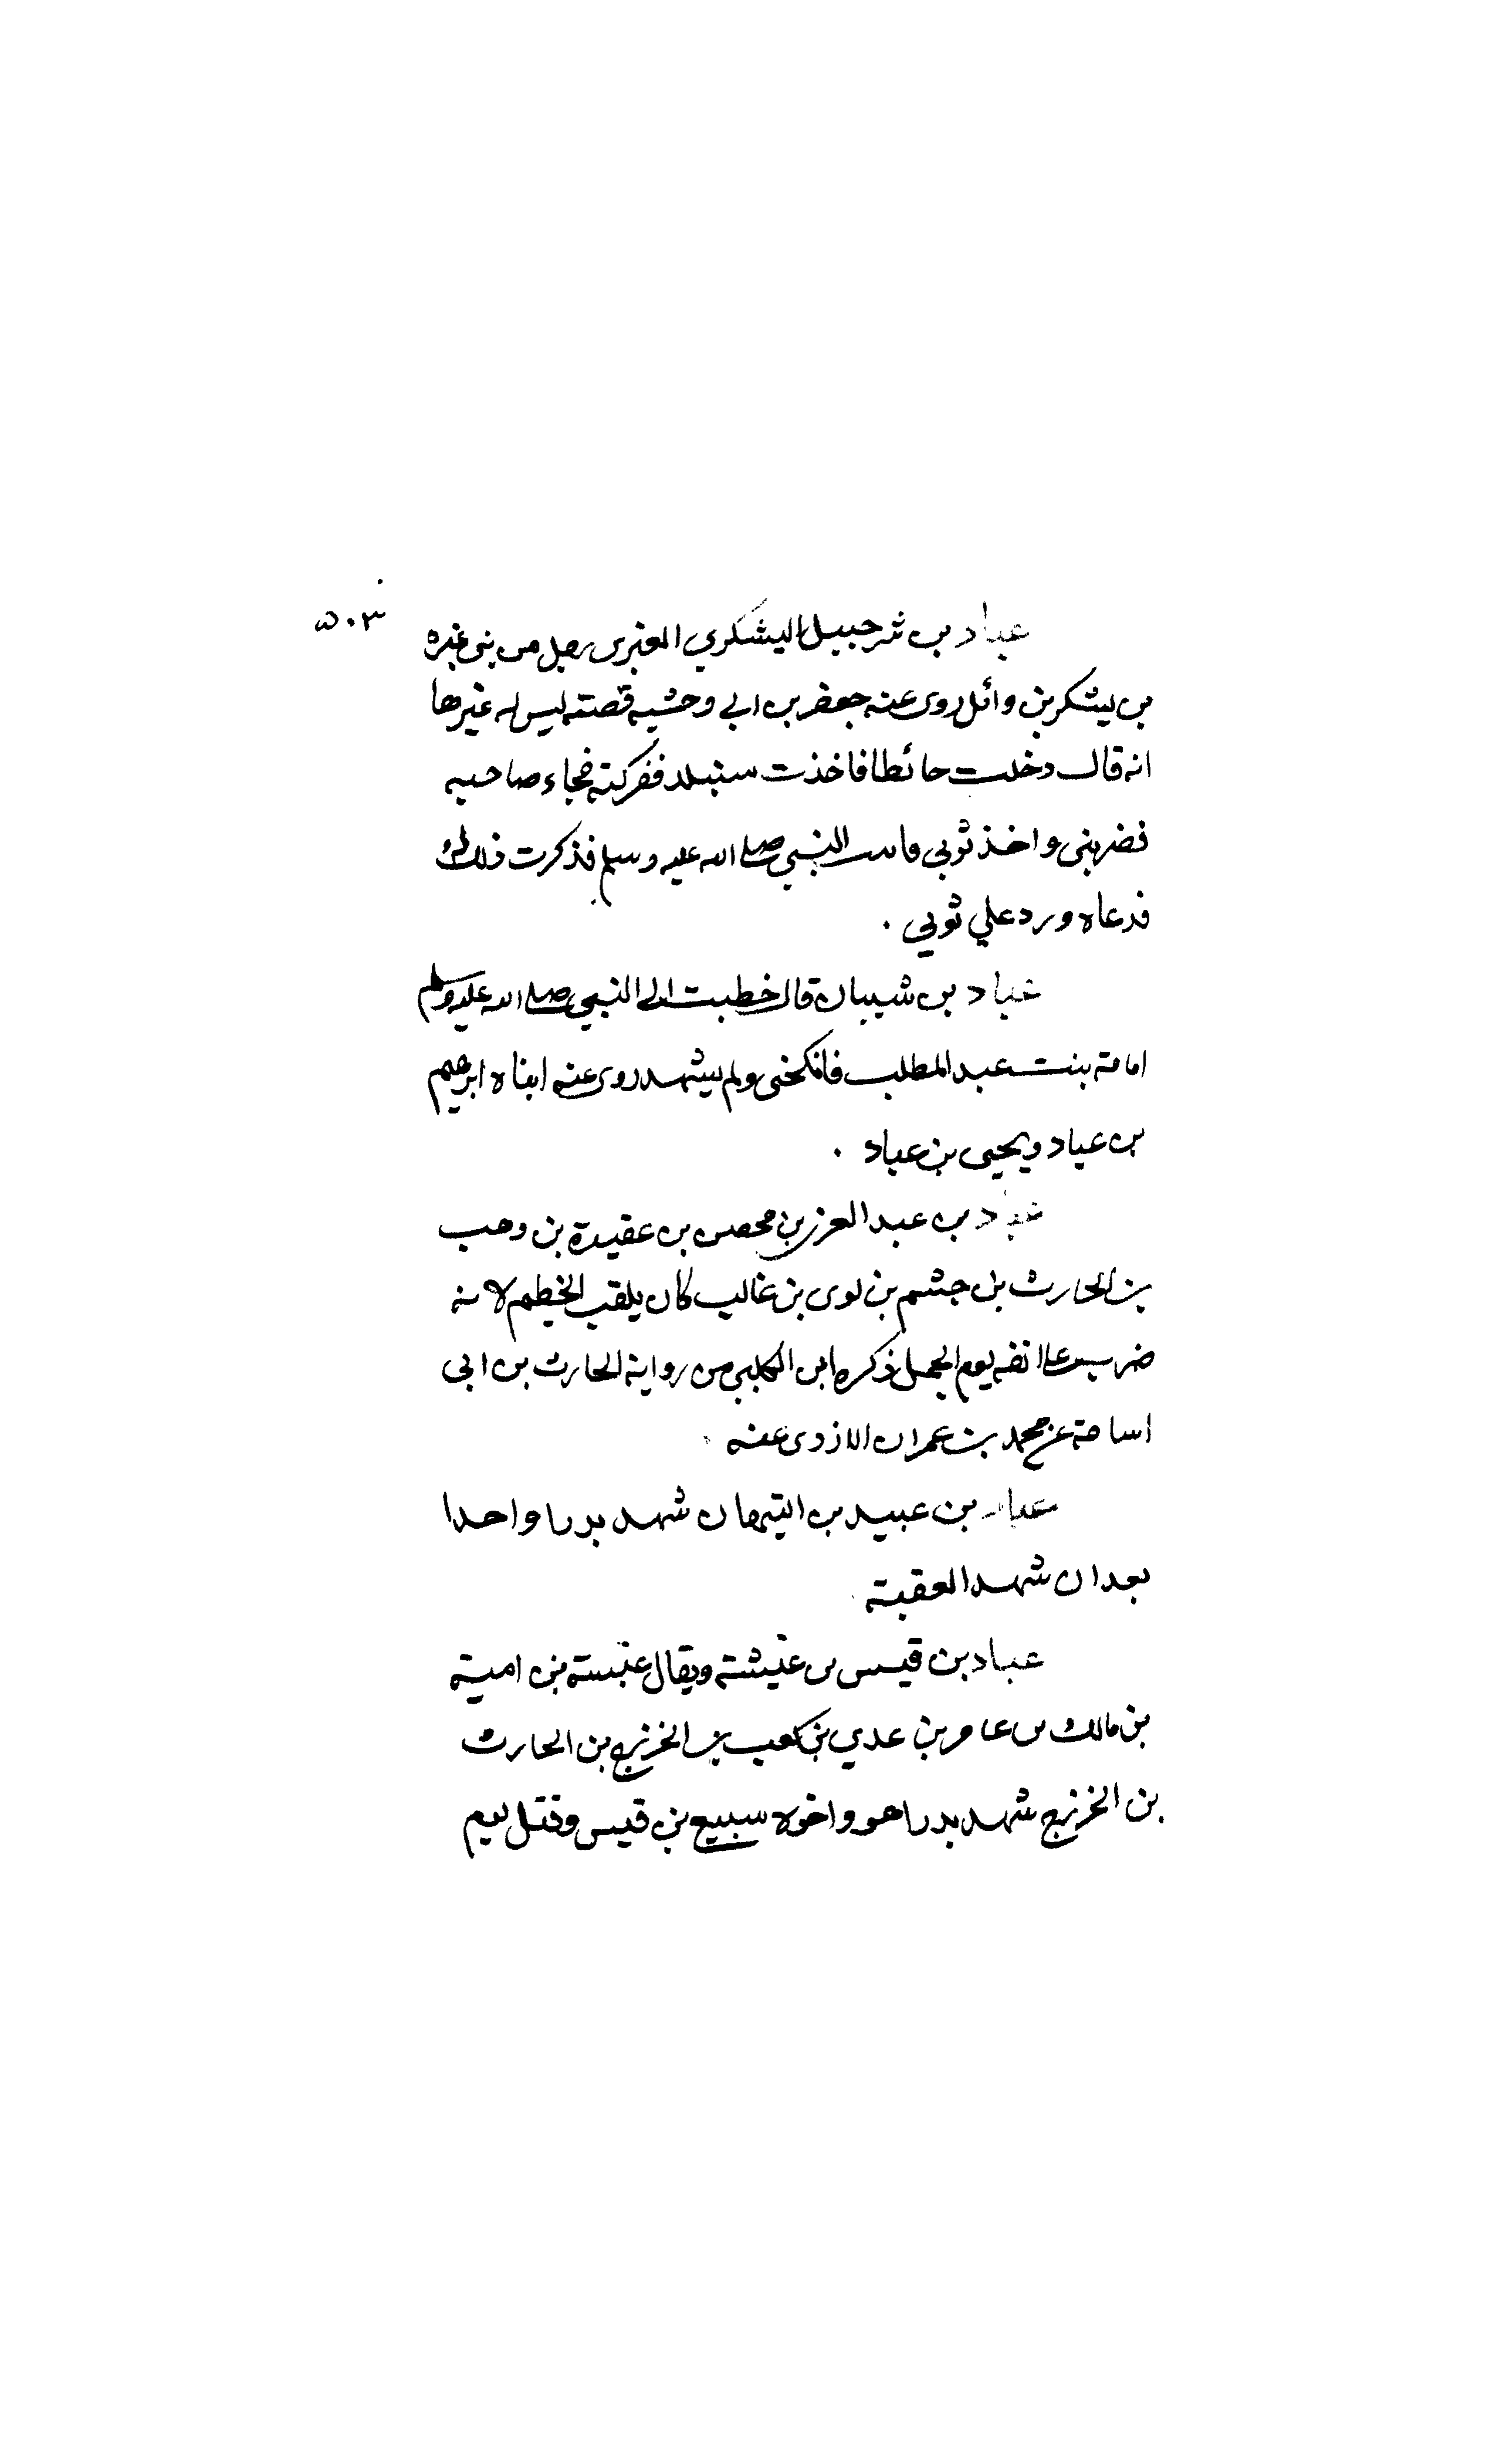 ٥٠٣
عباد بن شرحبيل اليشكري الغبري رجل من بني غبره
بن يشكر بن وائل روى عنه جعفر بن ابي وحشيه قصته ليس له غيرها
انه قال دخلت حائطا فاخذت سنبلا ففركته فجاء صاحبه
فضربني واخذ ثوبي فاتيت النبي صلى الله عليه وسلم فذكرت ذلك له
فدعاه ورد علي ثوبي .
عباد بن شيبان قال خطبت الى النبي صلى الله عليه وسلم
امامة بنت عبد المطلب فانكحني ولم يشهد روى عنه ابناه ابرهيم
بن عباد ويحيى بن عباد .
عباد بن عبد العزى بن محصن بن عقيدة بن وهب
بن الحارث بن جشم بن لوى بن غالب كان يلقب الخطيم لانه
ضرب على انفه يوم الجمل ذكره ابن الكلبي من رواية الحارث بن ابي
اسامة عن محمد بن عمران الازدي عنه .
عباد بن عبيد بن التيهان شهد بدرا واحدا
بعد ان شهد العقبة
عباد بن قيس بن عيشة ويقال عبسة بن امية
بن مالك بن عامر بن عدي بن كعب بن الخزرج بن الحارث
بن الخزرج شهد بدرا هو واخوه سبيع بن قيس وقتل يوم